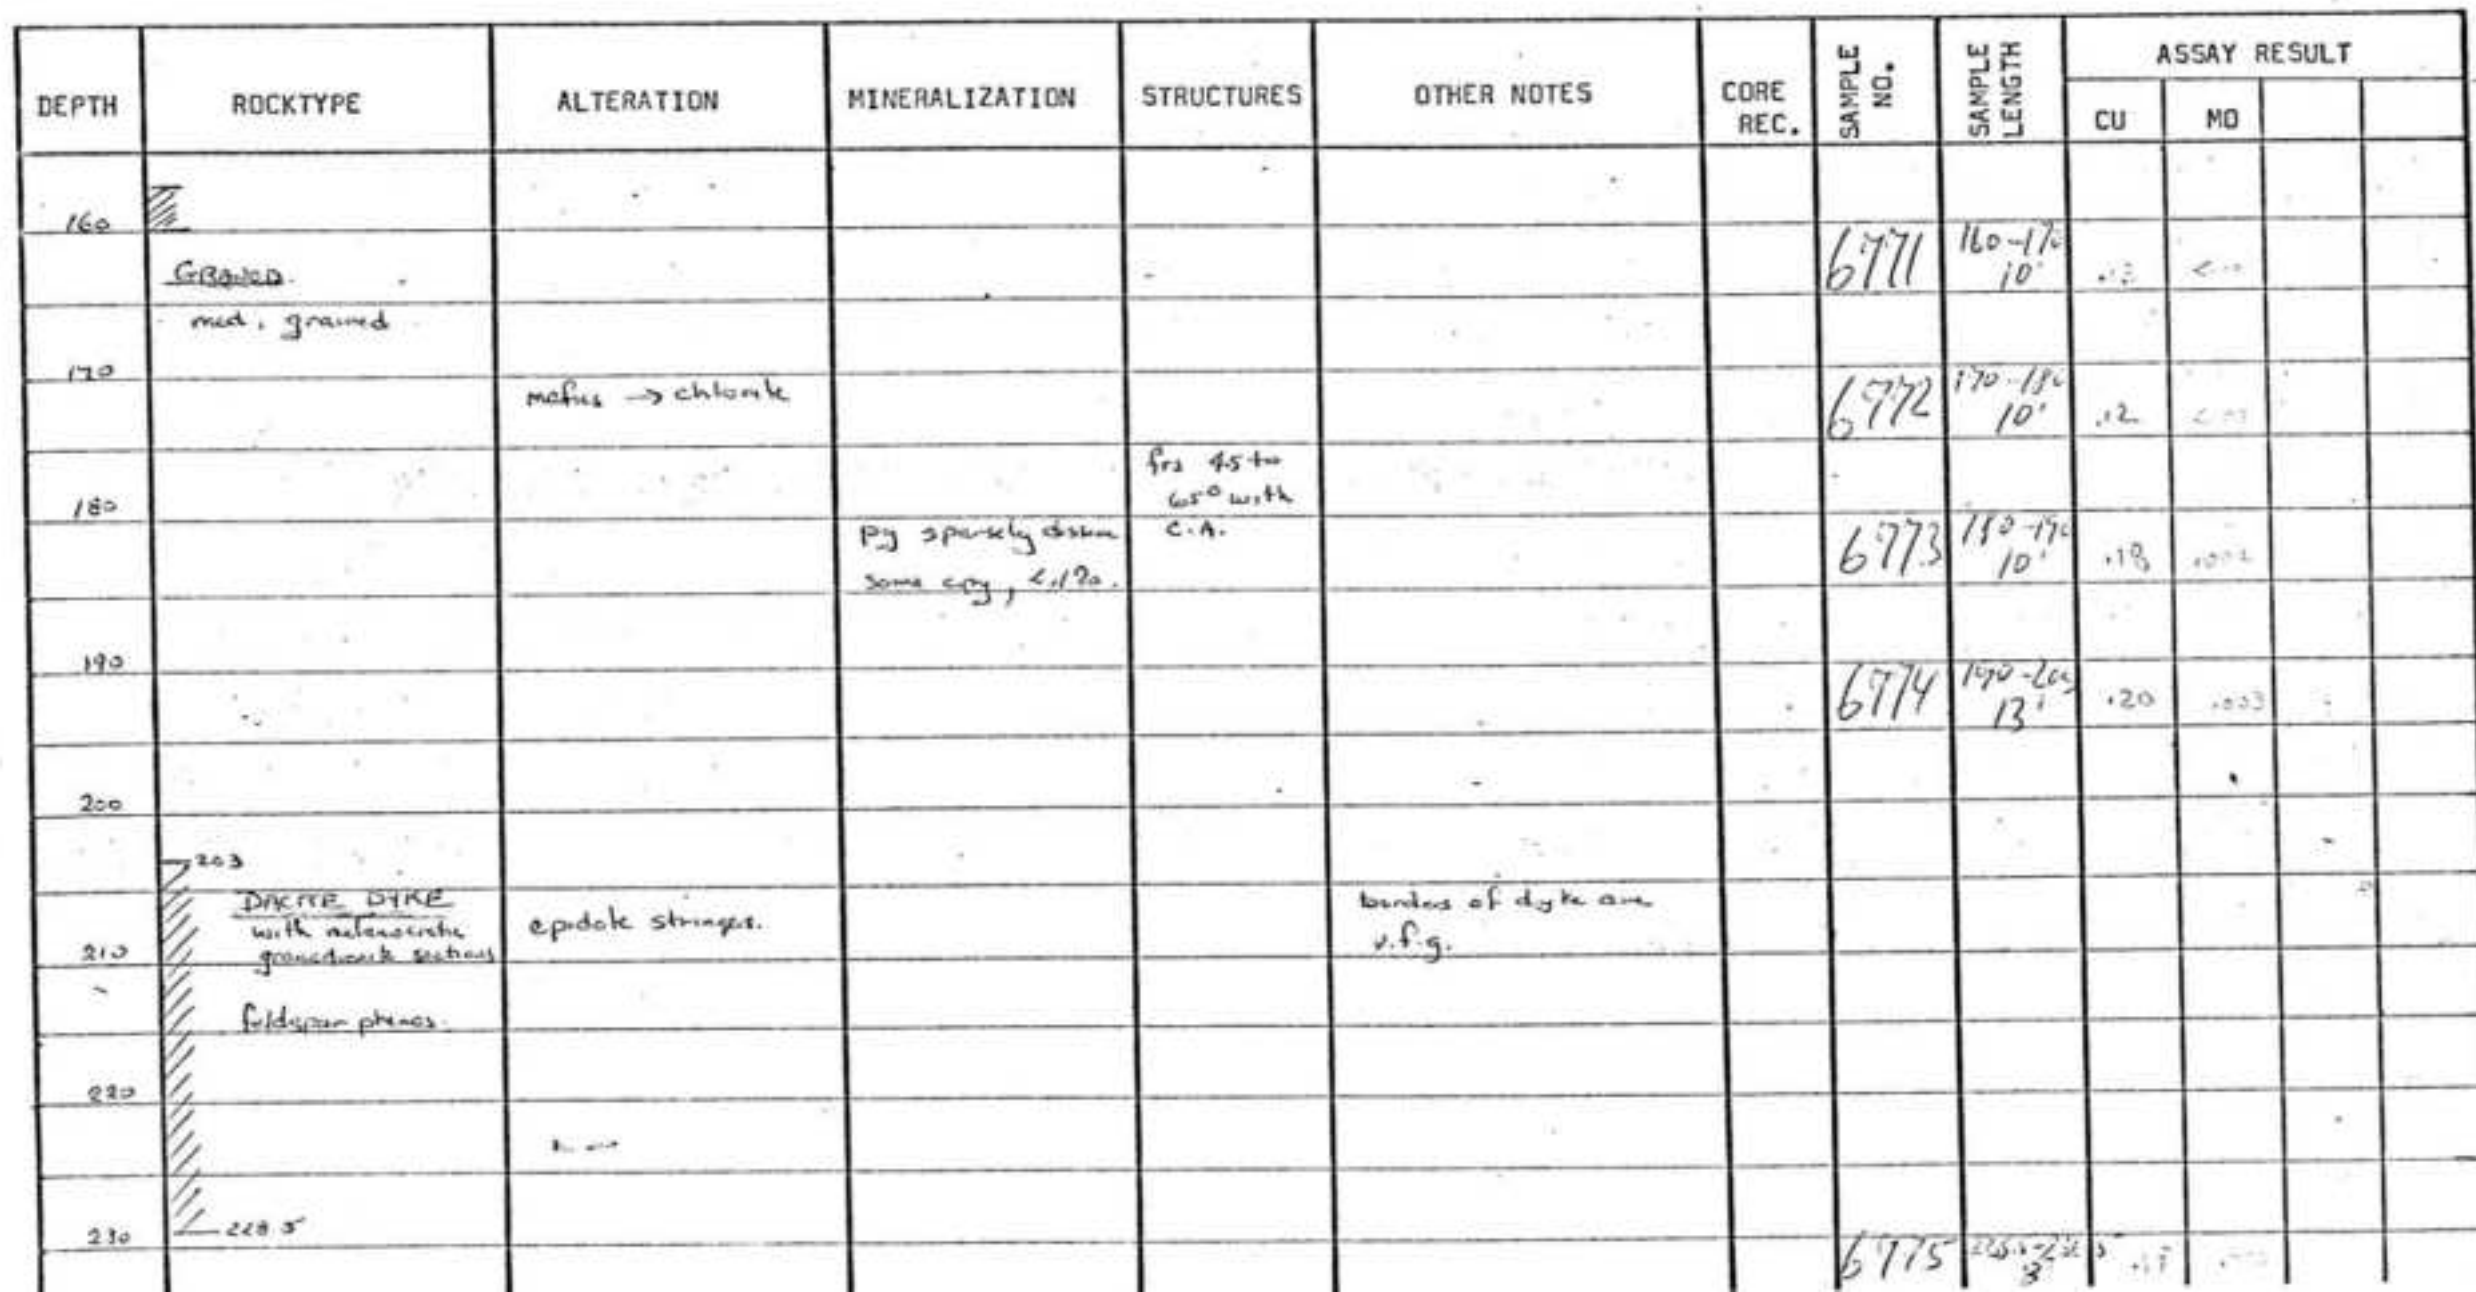 DEPTH ROCKTYPE ALTERATION MINERALIZATION STRUCTURES OTHER NOTES CORE REC. SAMPLE NO. SAMPLE LENGTH ASSAY RESULT
CU MO
160
GRANOD.
6771 160-170
10'
med. grained
170
mafics → chlorite
6772 170-180
10' .12
frs 45 to
65° with
C.A.
180
py sparsely dissem
some cpy, <.1%.
6773 180-190
10' .18 .002
190
6774 190-203
13' .20 .003
200
203
DACITE DYKE
with melanocratic
granodiorite sections
epidote stringers.
borders of dyke are
v.f.g.
210
feldspar phenos.
220
228.5
230
6775